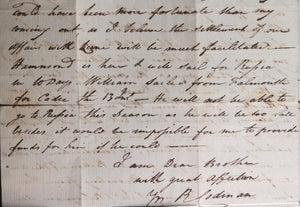 could have been more fortunate than my
coming out as I believe the settlement of our
affair with will be much facilitated —
Hammond is here & will sail for Russia
in 10 Days William Sailed from Falmouth
for Cadiz the 13 Inst — He will not be able to
go to Russia this Season as he will be too late
besides it would be impossible for me to provide
funds for him if he could —
I am Dear Brother
with great affection